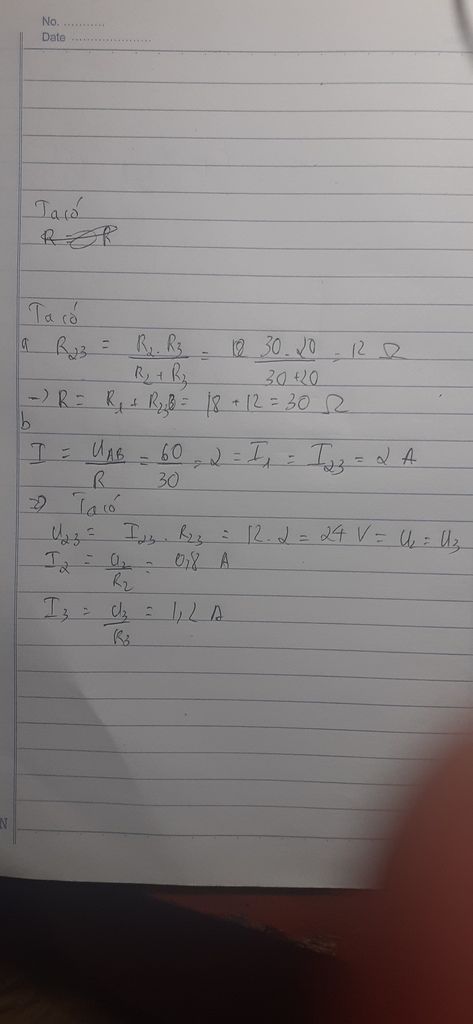 No. ...........
Date .....................
Ta có
R = R
Ta có
a R₂₃ = R₂ . R₃ / R₂ + R₃ = 30 . 20 / 30 + 20 = 12 Ω
→ R = R₁ + R₂₃ = 18 + 12 = 30 Ω
b
I = U_AB / R = 60 / 30 = 2 = I₁ = I₂₃ = 2 A
⇒ Ta có
U₂₃ = I₂₃ . R₂₃ = 12 . 2 = 24 V = U₂ = U₃
I₂ = U₂ / R₂ = 0,8 A
I₃ = U₃ / R₃ = 1,2 A
N